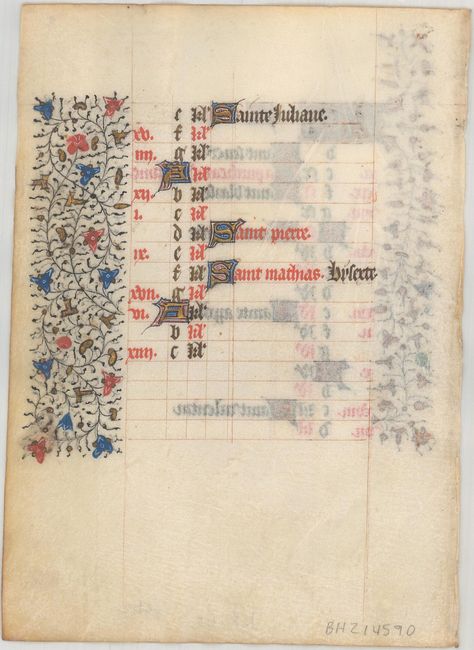 e kl' Sainte Juliane.
xv. f kl'
iiii. g kl'
A kl'
xii. b kl'
i. c kl'
d kl' Saint pierre.
ix. e kl'
f kl' Saint mathias. bisexte
xvii. g kl'
vi. A kl'
b kl'
xiiii. c kl'
BH214590